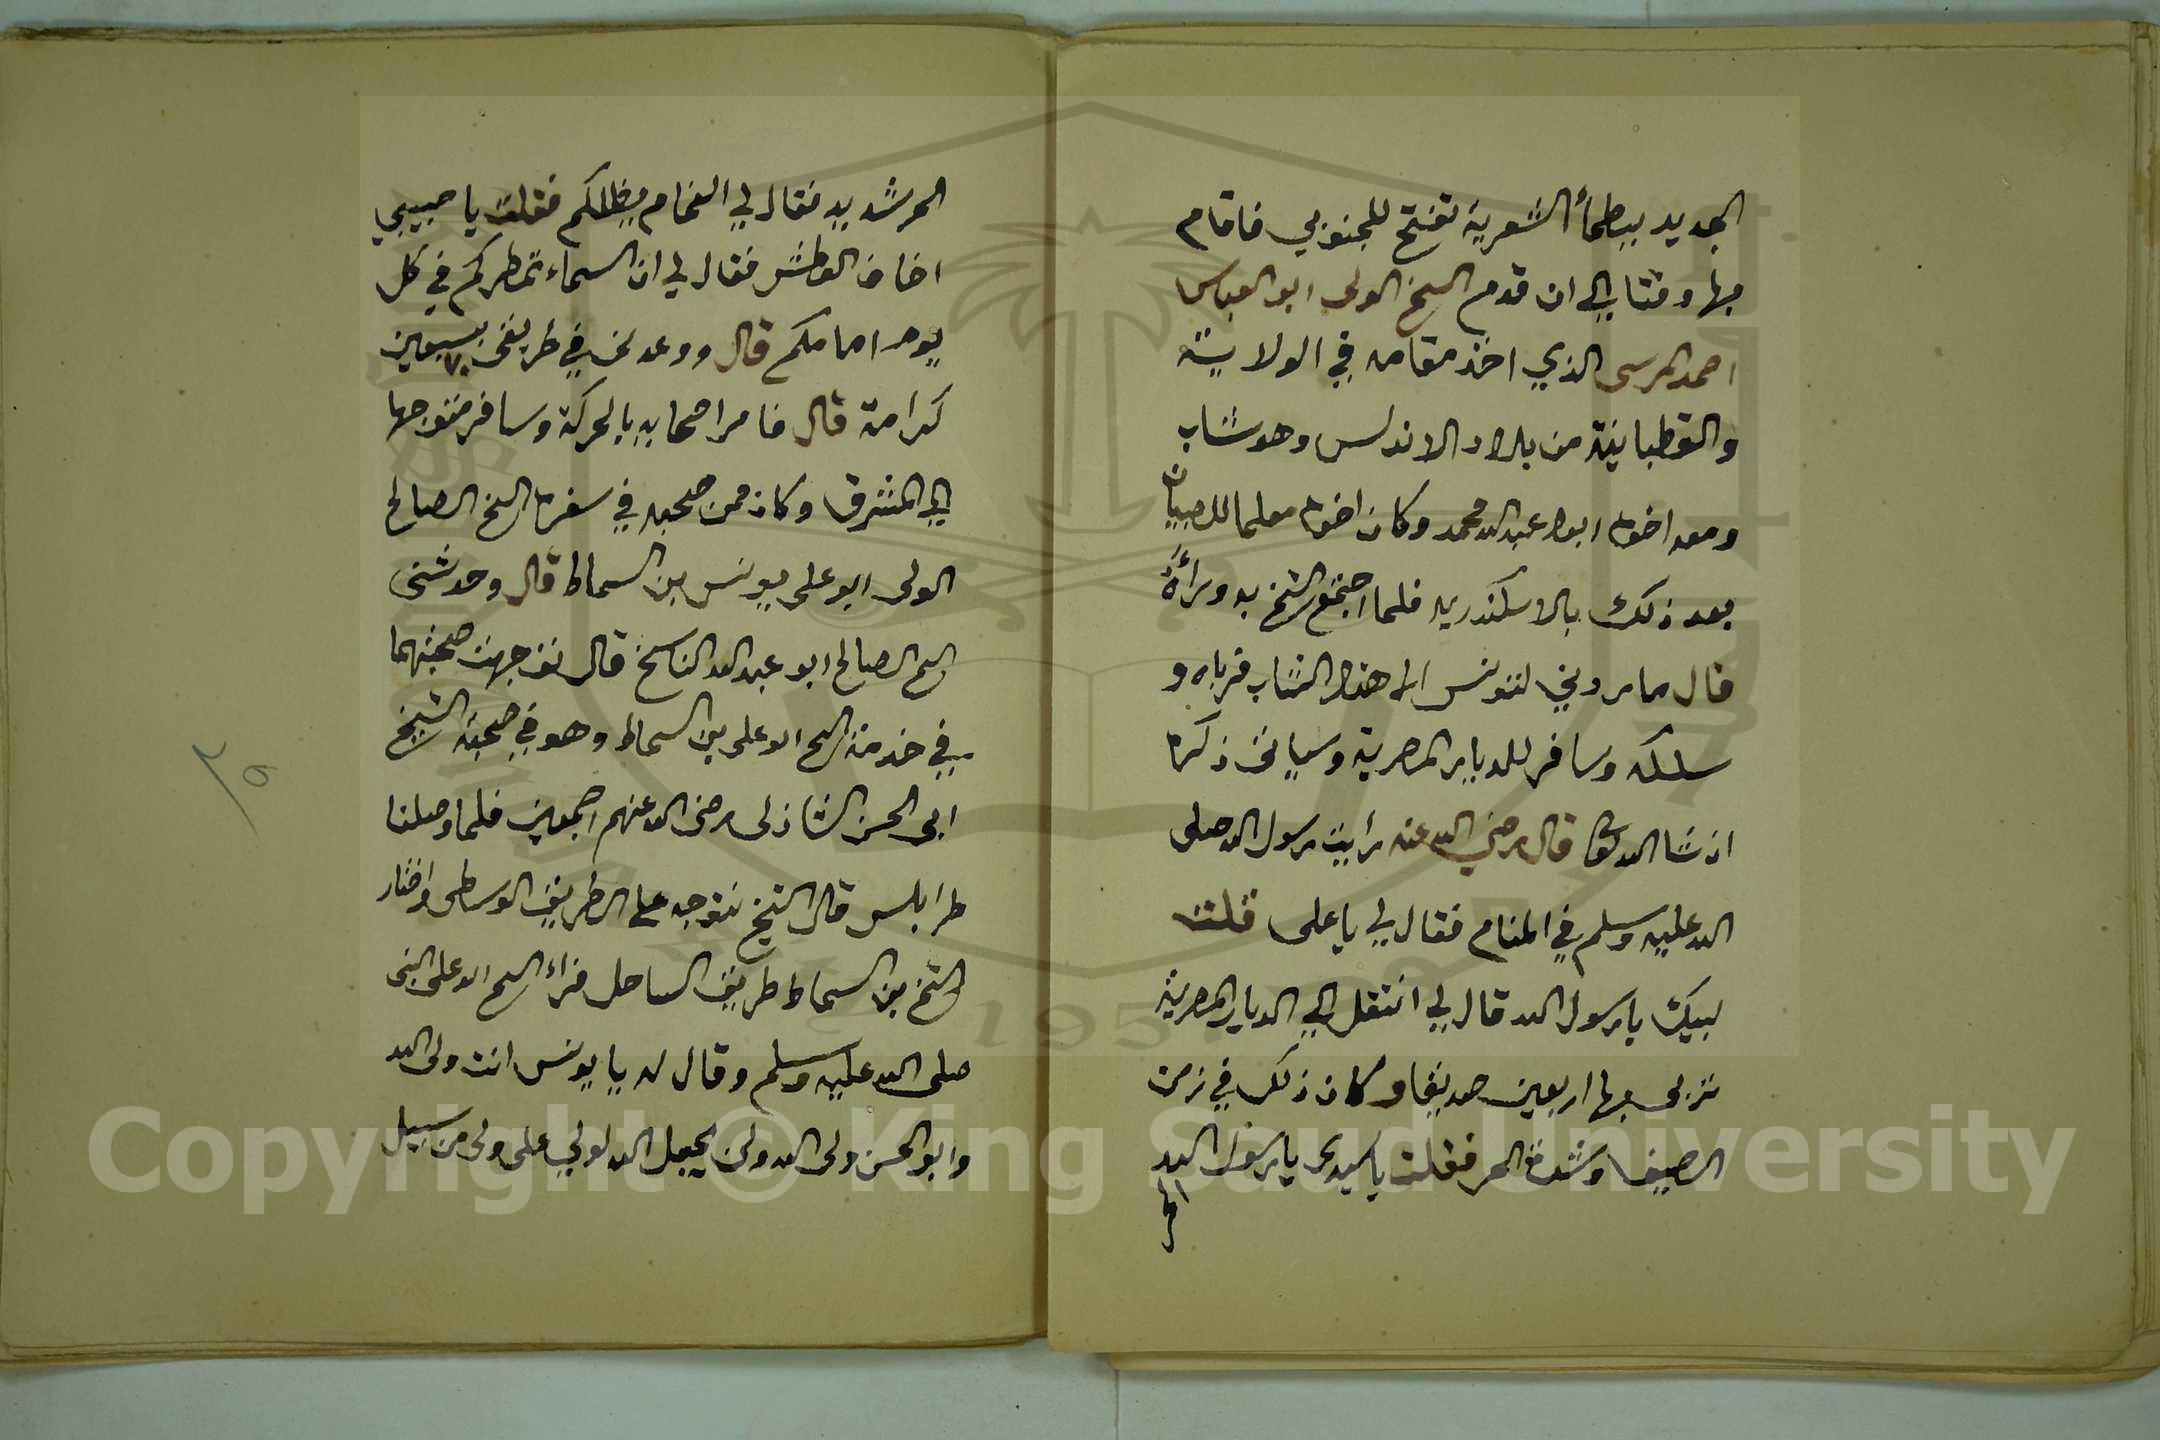 الجديد ببطحأ الشعرية تفتح للجنوبي فاقام
بها وقتا الي ان قدم الشيخ الولى ابو العباس
احمد المرسى الذي اخذ مقامه في الولاية
والقطبانية من بلاد الاندلس وهو شاب
ومعه اخوه ابوا عبد الله محمد وكان اخوه معلما للصبيان
بعد ذلك بالاسكندريه فلما اجتمع الشيخ به ورأءه
قال ما ردني لتونس الا هذا الشاب فرباه و
سلكه وسافر للديار المصرية وسياتى ذكره
ان شا الله تعا قال رضي الله عنه رأيت رسول الله صلى
الله عليه وسلم في المنام فقال لي يا على قلت
لبيك يا رسول الله قال لي انتقل الي الديار المصرية
تربى بها اربعين صديقا وكان ذلك في زمن
الصيف وشدة الحر فقلت يا سيدى يا رسول الله
الحر
الحر شديد فقال لي الغمام يظللكم فقلت يا حبيبي
اخاف العطش فقال لي ان السماء تمطركم في كل
يوم امامكم قال ووعدنى في طريقى بسبعين
٧٠
كرامة قال فامر اصحابه بالحركة وسافر متوجها
الي المشرق وكان ممن صحبه في سفره الشيخ الصالح
الولى ابو على يونس بن السماط قال وحدثنى
الشيخ الصالح ابو عبد الله الناسخ قال توجهت صحبتهما
في خدمة الشيخ ابو على بن السماط وهو في صحبة الشيخ
ابى الحسن الشاذلى رضى الله عنهم اجمعين فلما وصلنا
طرابلس قال الشيخ نتوجه على الطريق الوسطى واختار
الشيخ بن السماط طريق الساحل فراء الشيخ ابو على النبى
صلى الله عليه وسلم وقال له يا يونس انت ولى الله
وابو الحسن ولى الله ولن يجعل الله لولي على ولى من سبيل
Copyright © King Saud University
1957